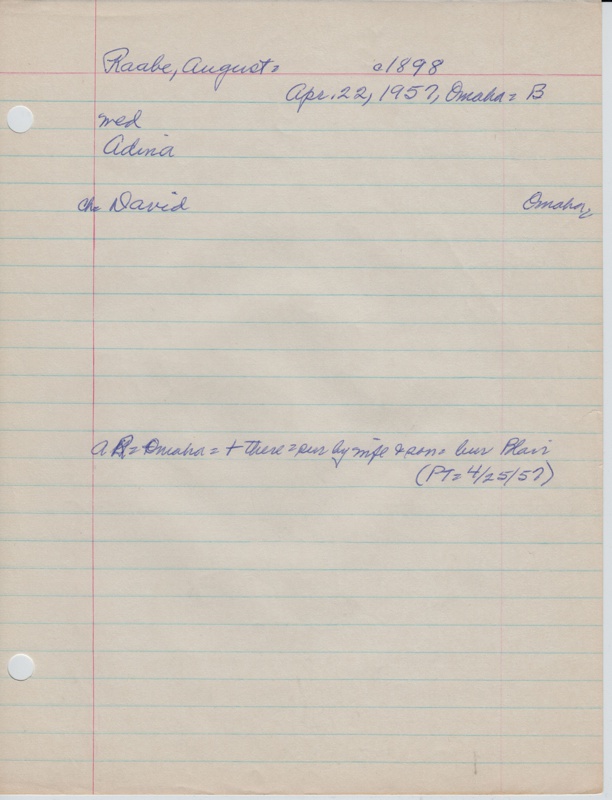 Raabe, August = c1898
Apr. 22, 1957, Omaha = B
med
Adina
ch = David Omaha
AR = Omaha = + there = sur by wife & son = bur Plain
(PT = 4/25/57)